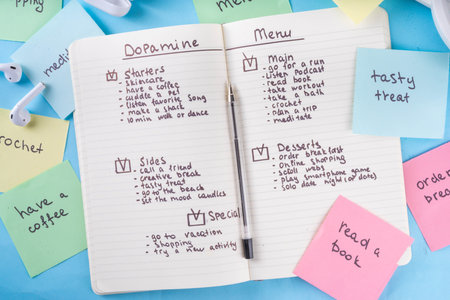 Dopamine
Menu
Starters
- skincare
- have a coffee
- cuddle a pet
- listen favorite song
- make a snack
- 10 min walk or dance
Sides
- call a friend
- creative break
- tasty treat
- go to the beach
- set the mood candles
Special
- go to vacation
- shopping
- try a new activity
Main
- go for a run
- listen podcast
- read book
- take workout
- take a bath
- crochet
- plan a trip
- meditate
Desserts
- order breakfast
- online shopping
- scroll webs
- play smartphone game
- solo date night (or date)
shopping
medi
crochet
have a
coffee
tasty
treat
read a
book
order
brea